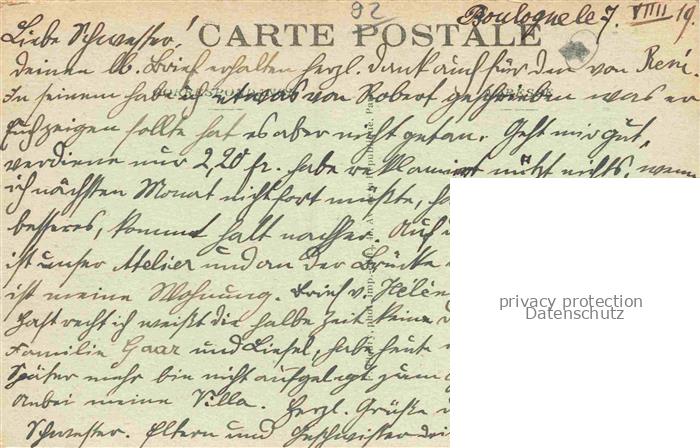 Boulogne le 7. VIIII 19.
92
CARTE POSTALE
Liebe Schwester!
deinen lb. Brief erhalten herzl. Dank auch für den von René
In seinem hab ich etwas von Robert geschrieben was er
Euch zeigen sollte hat es aber nicht getan. Geht mir gut,
verdiene nur 2,20 fr. habe reklamiert nützt nichts, wenn
ich nächsten Monat nicht fort müsste,
besseres, kommt halt nachher. Auf
ist unser Atelier und an der Brücke
ist meine Wohnung. Brief v. Hélèn
Hast recht ich weißt die halbe Zeit keine
Familie Gaar und Liesel, habe heut
Später mehr bin nicht aufgelegt zum
Anbei meine Villa. Herzl. Grüße
Schwester. Eltern und Geschwister
privacy protection
Datenschutz